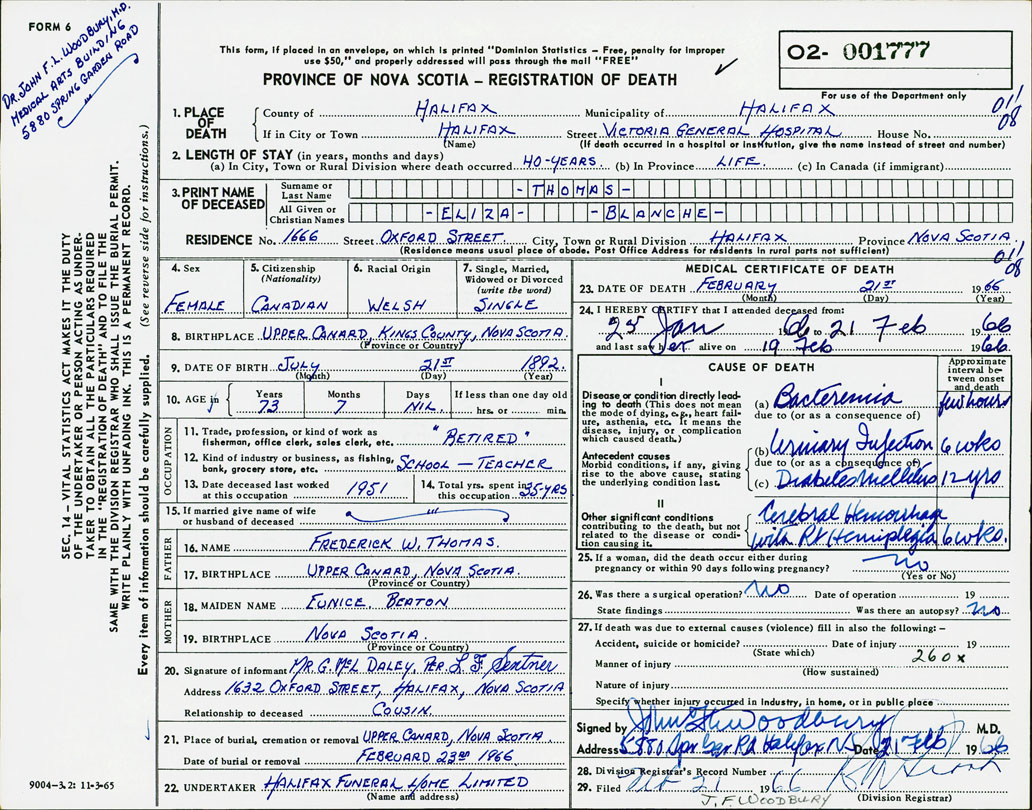 FORM 6
DR. JOHN F. L. WOODBURY, M.D.
MEDICAL ARTS BUILDING
5880 SPRING GARDEN ROAD
This form, if placed in an envelope, on which is printed "Dominion Statistics – Free, penalty for improper
use $50," and properly addressed will pass through the mail "FREE"
PROVINCE OF NOVA SCOTIA – REGISTRATION OF DEATH
02- 001777
For use of the Department only
011
08
1. PLACE OF DEATH
County of HALIFAX Municipality of HALIFAX
If in City or Town HALIFAX Street VICTORIA GENERAL HOSPITAL House No.
(Name) (If death occurred in a hospital or institution, give the name instead of street and number)
2. LENGTH OF STAY (in years, months and days)
(a) In City, Town or Rural Division where death occurred 40-YEARS. (b) In Province LIFE. (c) In Canada (if immigrant)
3. PRINT NAME OF DECEASED
Surname or Last Name -THOMAS-
All Given or Christian Names -ELIZA- -BLANCHE-
RESIDENCE No. 1666 Street OXFORD STREET City, Town or Rural Division HALIFAX Province NOVA SCOTIA.
(Residence means usual place of abode. Post Office Address for residents in rural parts not sufficient)
011
08
4. Sex FEMALE
5. Citizenship (Nationality) CANADIAN
6. Racial Origin WELSH
7. Single, Married, Widowed or Divorced (write the word) SINGLE
8. BIRTHPLACE UPPER CANARD, KINGS COUNTY, NOVA SCOTIA.
(Province or Country)
9. DATE OF BIRTH JULY 21ST 1892.
(Month) (Day) (Year)
10. AGE in Years 73 Months 7 Days NIL. If less than one day old hrs. or min.
OCCUPATION
11. Trade, profession, or kind of work as fisherman, office clerk, sales clerk, etc. "RETIRED"
12. Kind of industry or business, as fishing, bank, grocery store, etc. SCHOOL – TEACHER
13. Date deceased last worked at this occupation 1951
14. Total yrs. spent in this occupation 35-YRS
15. If married give name of wife or husband of deceased
FATHER
16. NAME FREDERICK W. THOMAS.
17. BIRTHPLACE UPPER CANARD, NOVA SCOTIA.
(Province or Country)
MOTHER
18. MAIDEN NAME EUNICE. BEATON
19. BIRTHPLACE NOVA SCOTIA.
(Province or Country)
20. Signature of informant MR. G. McL DALEY, PER. L. F. Sentner
Address 1632 OXFORD STREET, HALIFAX, NOVA SCOTIA
Relationship to deceased COUSIN.
21. Place of burial, cremation or removal UPPER CANARD, NOVA SCOTIA.
Date of burial or removal FEBRUARD 23RD 1966
22. UNDERTAKER HALIFAX FUNERAL HOME LIMITED
(Name and address)
MEDICAL CERTIFICATE OF DEATH
23. DATE OF DEATH FEBRUARY 21ST 1966
(Month) (Day) (Year)
24. I HEREBY CERTIFY that I attended deceased from:
25 Jan 19 66 to 21 Feb 1966
and last saw her alive on 19 Feb 1966.
CAUSE OF DEATH
Approximate interval between onset and death
I
Disease or condition directly leading to death (This does not mean the mode of dying, e.g., heart failure, asthenia, etc. It means the disease, injury, or complication which caused death.)
(a) Bacteremia few hours
due to (or as a consequence of)
Antecedent causes
Morbid conditions, if any, giving rise to the above cause, stating the underlying condition last.
(b) Urinary Infection 6 wks
due to (or as a consequence of)
(c) Diabetes Mellitus 12 yrs
II
Other significant conditions contributing to the death, but not related to the disease or condition causing it.
Cerebral Hemorrhage
with Rt Hemiplegia 6 wks.
25. If a woman, did the death occur either during pregnancy or within 90 days following pregnancy? no
(Yes or No)
26. Was there a surgical operation? no Date of operation 19
State findings Was there an autopsy? no
27. If death was due to external causes (violence) fill in also the following: –
Accident, suicide or homicide? Date of injury 19
(State which)
260x
Manner of injury
(How sustained)
Nature of injury
Specify whether injury occurred in Industry, in home, or in public place
Signed by John F L Woodbury M.D.
Address 5880 Spr Gar Rd Halifax NS Date 21 Feb 1966
28. Division Registrar's Record Number
29. Filed Feb 21 1966
(Division Registrar)
J. F. WOODBURY
SEC. 14 – VITAL STATISTICS ACT MAKES IT THE DUTY
OF THE UNDERTAKER OR PERSON ACTING AS UNDER-
TAKER TO OBTAIN ALL THE PARTICULARS REQUIRED
IN THE "REGISTRATION OF DEATH" AND TO FILE THE
SAME WITH THE DIVISION REGISTRAR WHO SHALL ISSUE THE BURIAL PERMIT.
WRITE PLAINLY WITH UNFADING INK. THIS IS A PERMANENT RECORD.
Every item of information should be carefully supplied. (See reverse side for instructions.)
9004–3.2: 11-3-65